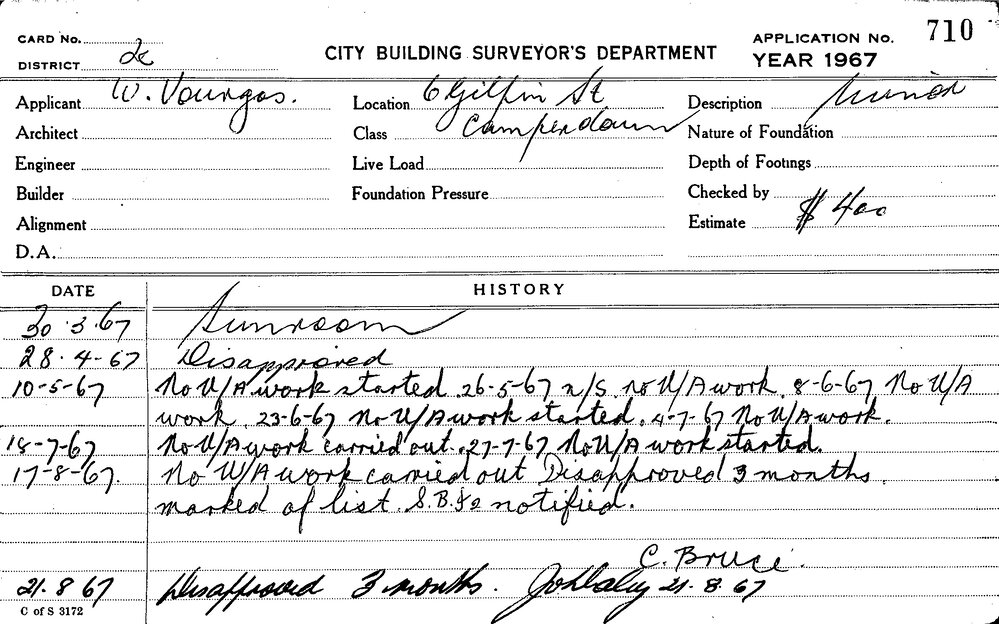 710
CARD No.
APPLICATION No.
DISTRICT 2c
CITY BUILDING SURVEYOR'S DEPARTMENT
YEAR 1967
Applicant W. Vourgas. Location 6 Gilpin St Description Minor
Architect Class Camperdown Nature of Foundation
Engineer Live Load Depth of Footings
Builder Foundation Pressure Checked by
Alignment Estimate $ 400
D.A.
DATE HISTORY
30.3.67 Sunroom
28.4-67 Disapproved
10-5-67 No U/A work started. 26-5-67 n/S. no U/A work. 8-6-67 No U/A
work. 23-6-67 No U/A work started. 4-7-67 No U/A work.
18-7-67 No U/A work carried out. 27-7-67 No U/A work started.
17-8-67. No U/A work carried out Disapproved 3 months.
marked of list. S.B. notified.
C. Bruce.
21.8 67 Disapproved 3 months. 21.8.67
C of S 3172